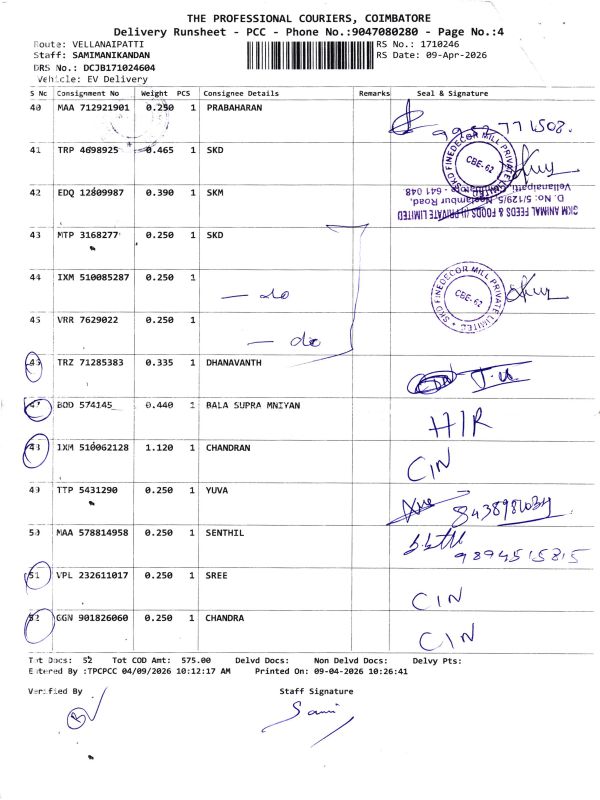 THE PROFESSIONAL COURIERS, COIMBATORE
Delivery Runsheet - PCC - Phone No.:9047080280 - Page No.:4
Route: VELLANAIPATTI
RS No.: 1710246
Staff: SAMIMANIKANDAN
RS Date: 09-Apr-2026
DRS No.: DCJB171024604
Vehicle: EV Delivery
S No Consignment No Weight PCS Consignee Details Remarks Seal & Signature
40 MAA 712921901 0.250 1 PRABAHARAN
41 TRP 4698925 0.465 1 SKD
SKD FINEDECOR MILL PRIVATE LIMITED
CBE-62
42 EDQ 12809987 0.390 1 SKM
SKM ANIMAL FEEDS & FOODS (I) PRIVATE LIMITED
D. No: 5/129/5, Neelambur Road,
Vellanaipatti, Coimbatore - 641 048
43 MTP 3168277 0.250 1 SKD
44 IXM 510085287 0.250 1 — do
SKD FINEDECOR MILL PRIVATE LIMITED
CBE-62
45 VRR 7629022 0.250 1 — do
46 TRZ 71285383 0.335 1 DHANAVANTH
47 BOD 574145 0.440 1 BALA SUPRA MNIYAN H/R
48 IXM 510062128 1.120 1 CHANDRAN C/N
49 TTP 5431290 0.250 1 YUVA
50 MAA 578814958 0.250 1 SENTHIL 9894515815
51 VPL 232611017 0.250 1 SREE C/N
52 GGN 901826060 0.250 1 CHANDRA C/N
Tot Docs: 52 Tot COD Amt: 575.00 Delvd Docs: Non Delvd Docs: Delvy Pts:
Entered By :TPCPCC 04/09/2026 10:12:17 AM Printed On: 09-04-2026 10:26:41
Verified By Staff Signature
Sami